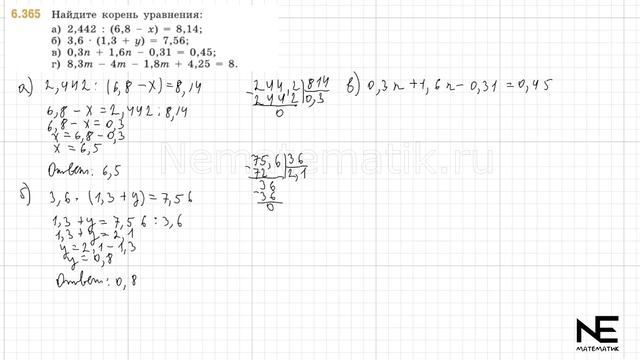 6.365 Найдите корень уравнения:
а) 2,442 : (6,8 − x) = 8,14;
б) 3,6 · (1,3 + y) = 7,56;
в) 0,3n + 1,6n − 0,31 = 0,45;
г) 8,3m − 4m − 1,8m + 4,25 = 8.
а) 2,442 : (6,8 − x) = 8,14
6,8 − x = 2,442 : 8,14
6,8 − x = 0,3
x = 6,8 − 0,3
x = 6,5
Ответ: 6,5
б) 3,6 · (1,3 + y) = 7,56
1,3 + y = 7,56 : 3,6
1,3 + y = 2,1
y = 2,1 − 1,3
y = 0,8
Ответ: 0,8
− 244,2 | 814
244 2 | 0,3
0
− 75,6 | 36
72 | 2,1
− 36
36
0
в) 0,3n + 1,6n − 0,31 = 0,45
Nematematik.ru
NE
МАТЕМАТИК